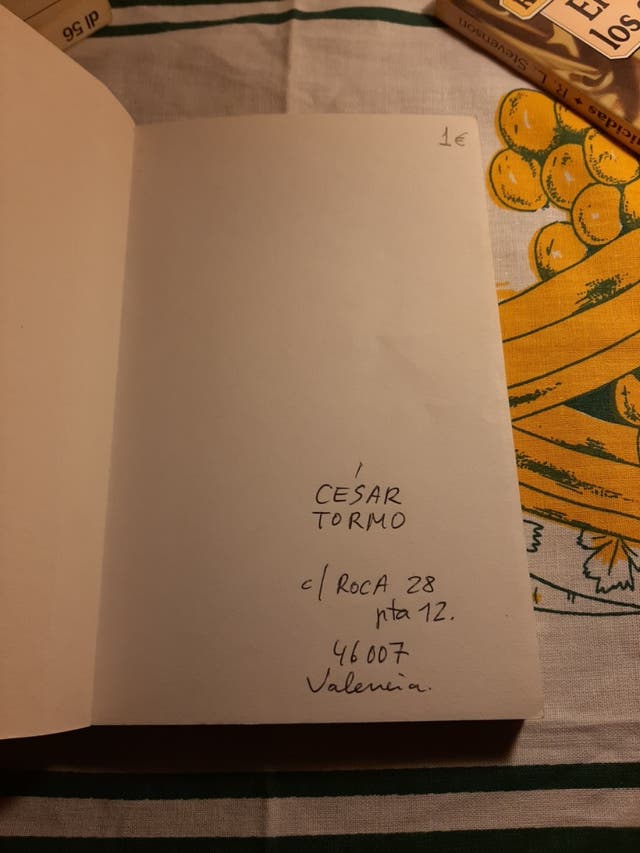 dl 56
El
los
nicidas • R. L. Stevenson
1€
CÉSAR
TORMO
c/ ROCA 28
pta 12.
46007
Valencia.